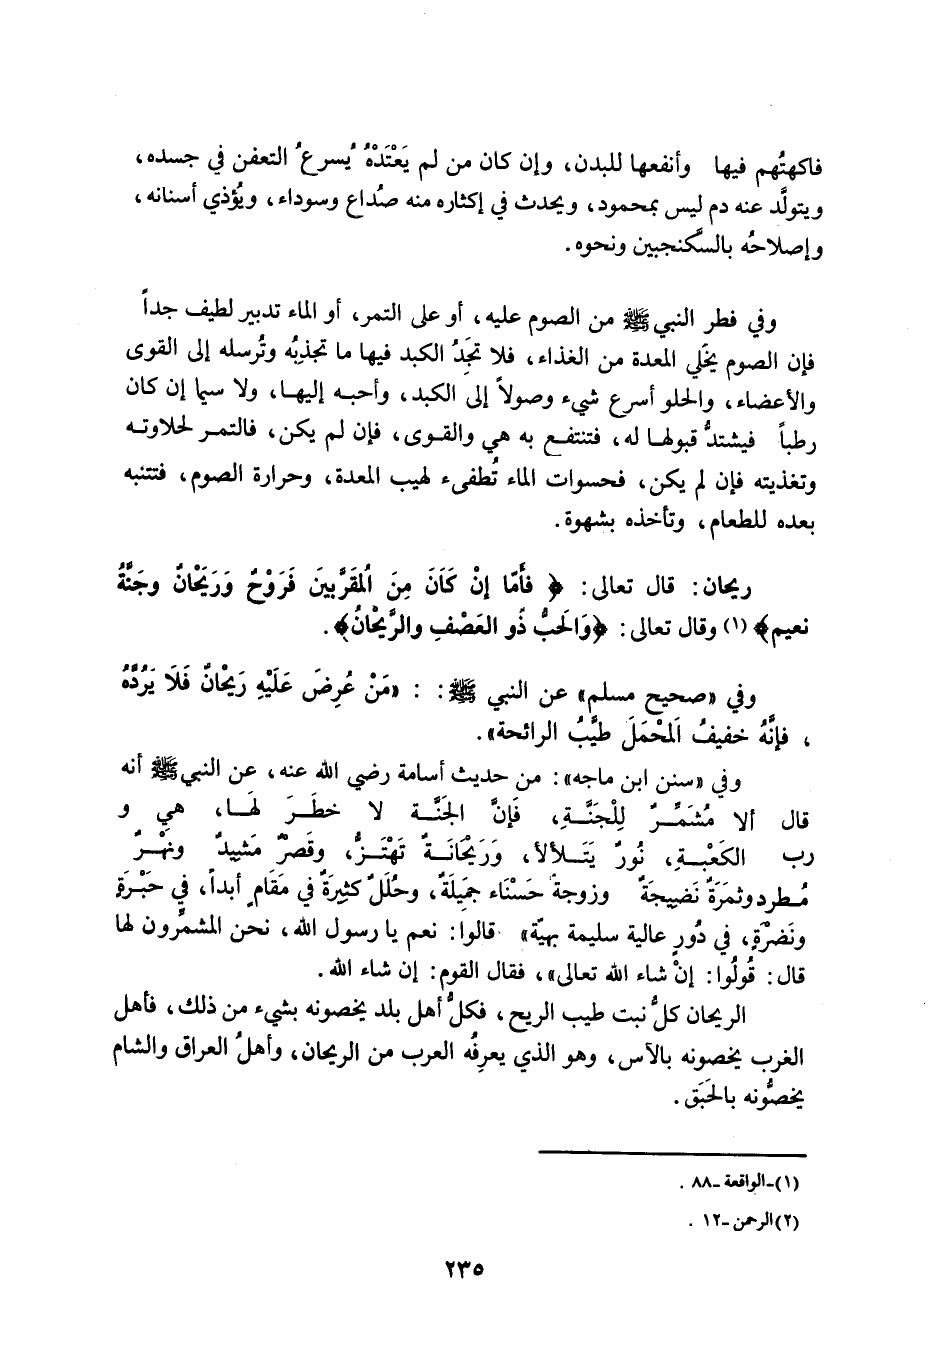 فاكهتُهم فيها وأنفعها للبدن، وإن كان من لم يَعْتَدْهُ يُسرعُ التعفن في جسده،
ويتولَّد عنه دم ليس بمحمود، ويحدث في إكثاره منه صُداع وسوداء، ويُؤذي أسنانه،
وإصلاحُه بالسكَّنجبين ونحوه.
وفي فطر النبي ﷺ من الصوم عليه، أو على التمر، أو الماء تدبير لطيف جداً
فإن الصوم يخَلي المعدة من الغذاء، فلا تجَدُ الكبد فيها ما تجذِبُه وتُرسله إلى القوى
والأعضاء، والحلو أسرع شيء وصولاً إلى الكبد، وأحبه إليها، ولا سيما إن كان
رطباً فيشتدُّ قبولها له، فتنتفع به هي والقوى، فإن لم يكن، فالتمر لحلاوته
وتغذيته فإن لم يكن، فحسوات الماء تُطفىء لهيب المعدة، وحرارة الصوم، فتتنبه
بعده للطعام، وتأخذه بشهوة.
ريحان: قال تعالى: ﴿فأَمّا إنْ كَانَ مِنَ اُلمقَرَّبينَ فَرَوْحٌ وَرَيَحْانٌ وجَنَّةُ
نعيم﴾ (١) وقال تعالى: ﴿وَالحَبُّ ذُو العَصْفِ والرَّيحْانُ﴾.
وفي «صحيح مسلم» عن النبي ﷺ: : «مَنْ عُرِضَ عَلَيْهِ رَيحْانٌ فَلَا يَرُدَّهُ
، فإنَّهُ خفيفُ اَلمحْمَلَ طيَّبُ الرائحة».
وفي «سنن ابن ماجه»: من حديث أسامة رضي الله عنه، عن النبي ﷺ أنه
قال ألا مُشَمِّرٌ لِلْجَنَّةِ، فَإنَّ الجَنَّة لا خطَرَ لَها، هي و
رب الكَعْبةِ، نُورٌ يَتَلألأ، وَرَيْحَانَةٌ تهْتَزُّ، وقَصرٌ مَشيدٌ ونهْرٌ
مُطرد وثمَرَةٌ نَضيجَةٌ وزوجةٌ حَسْنَاء جمَيلَةٌ، وحُلَلٌ كثيرَةٌ في مَقَامٍ أبداً، في حَبْرَةٍ
ونَضرْةٍ، في دُورٍ عالية سليمة بهيّة» قالوا: نعم يا رسول الله، نحن المشمَّرون لها
قال: قُولُوا: إنْ شاء الله تعالى»، فقال القوم: إن شاء الله.
الريحان كلُّ نبت طيب الريح، فكلُّ أهل بلد يخصونه بشيء من ذلك، فأهل
الغرب يخصونه بالآس، وهو الذي يعرفُه العرب من الريحان، وأهلُ العراق والشام
يخصُّونه بالحَبَق.
(١)-الواقعة -٨٨.
(٢)الرحمن -١٢.
٢٣٥